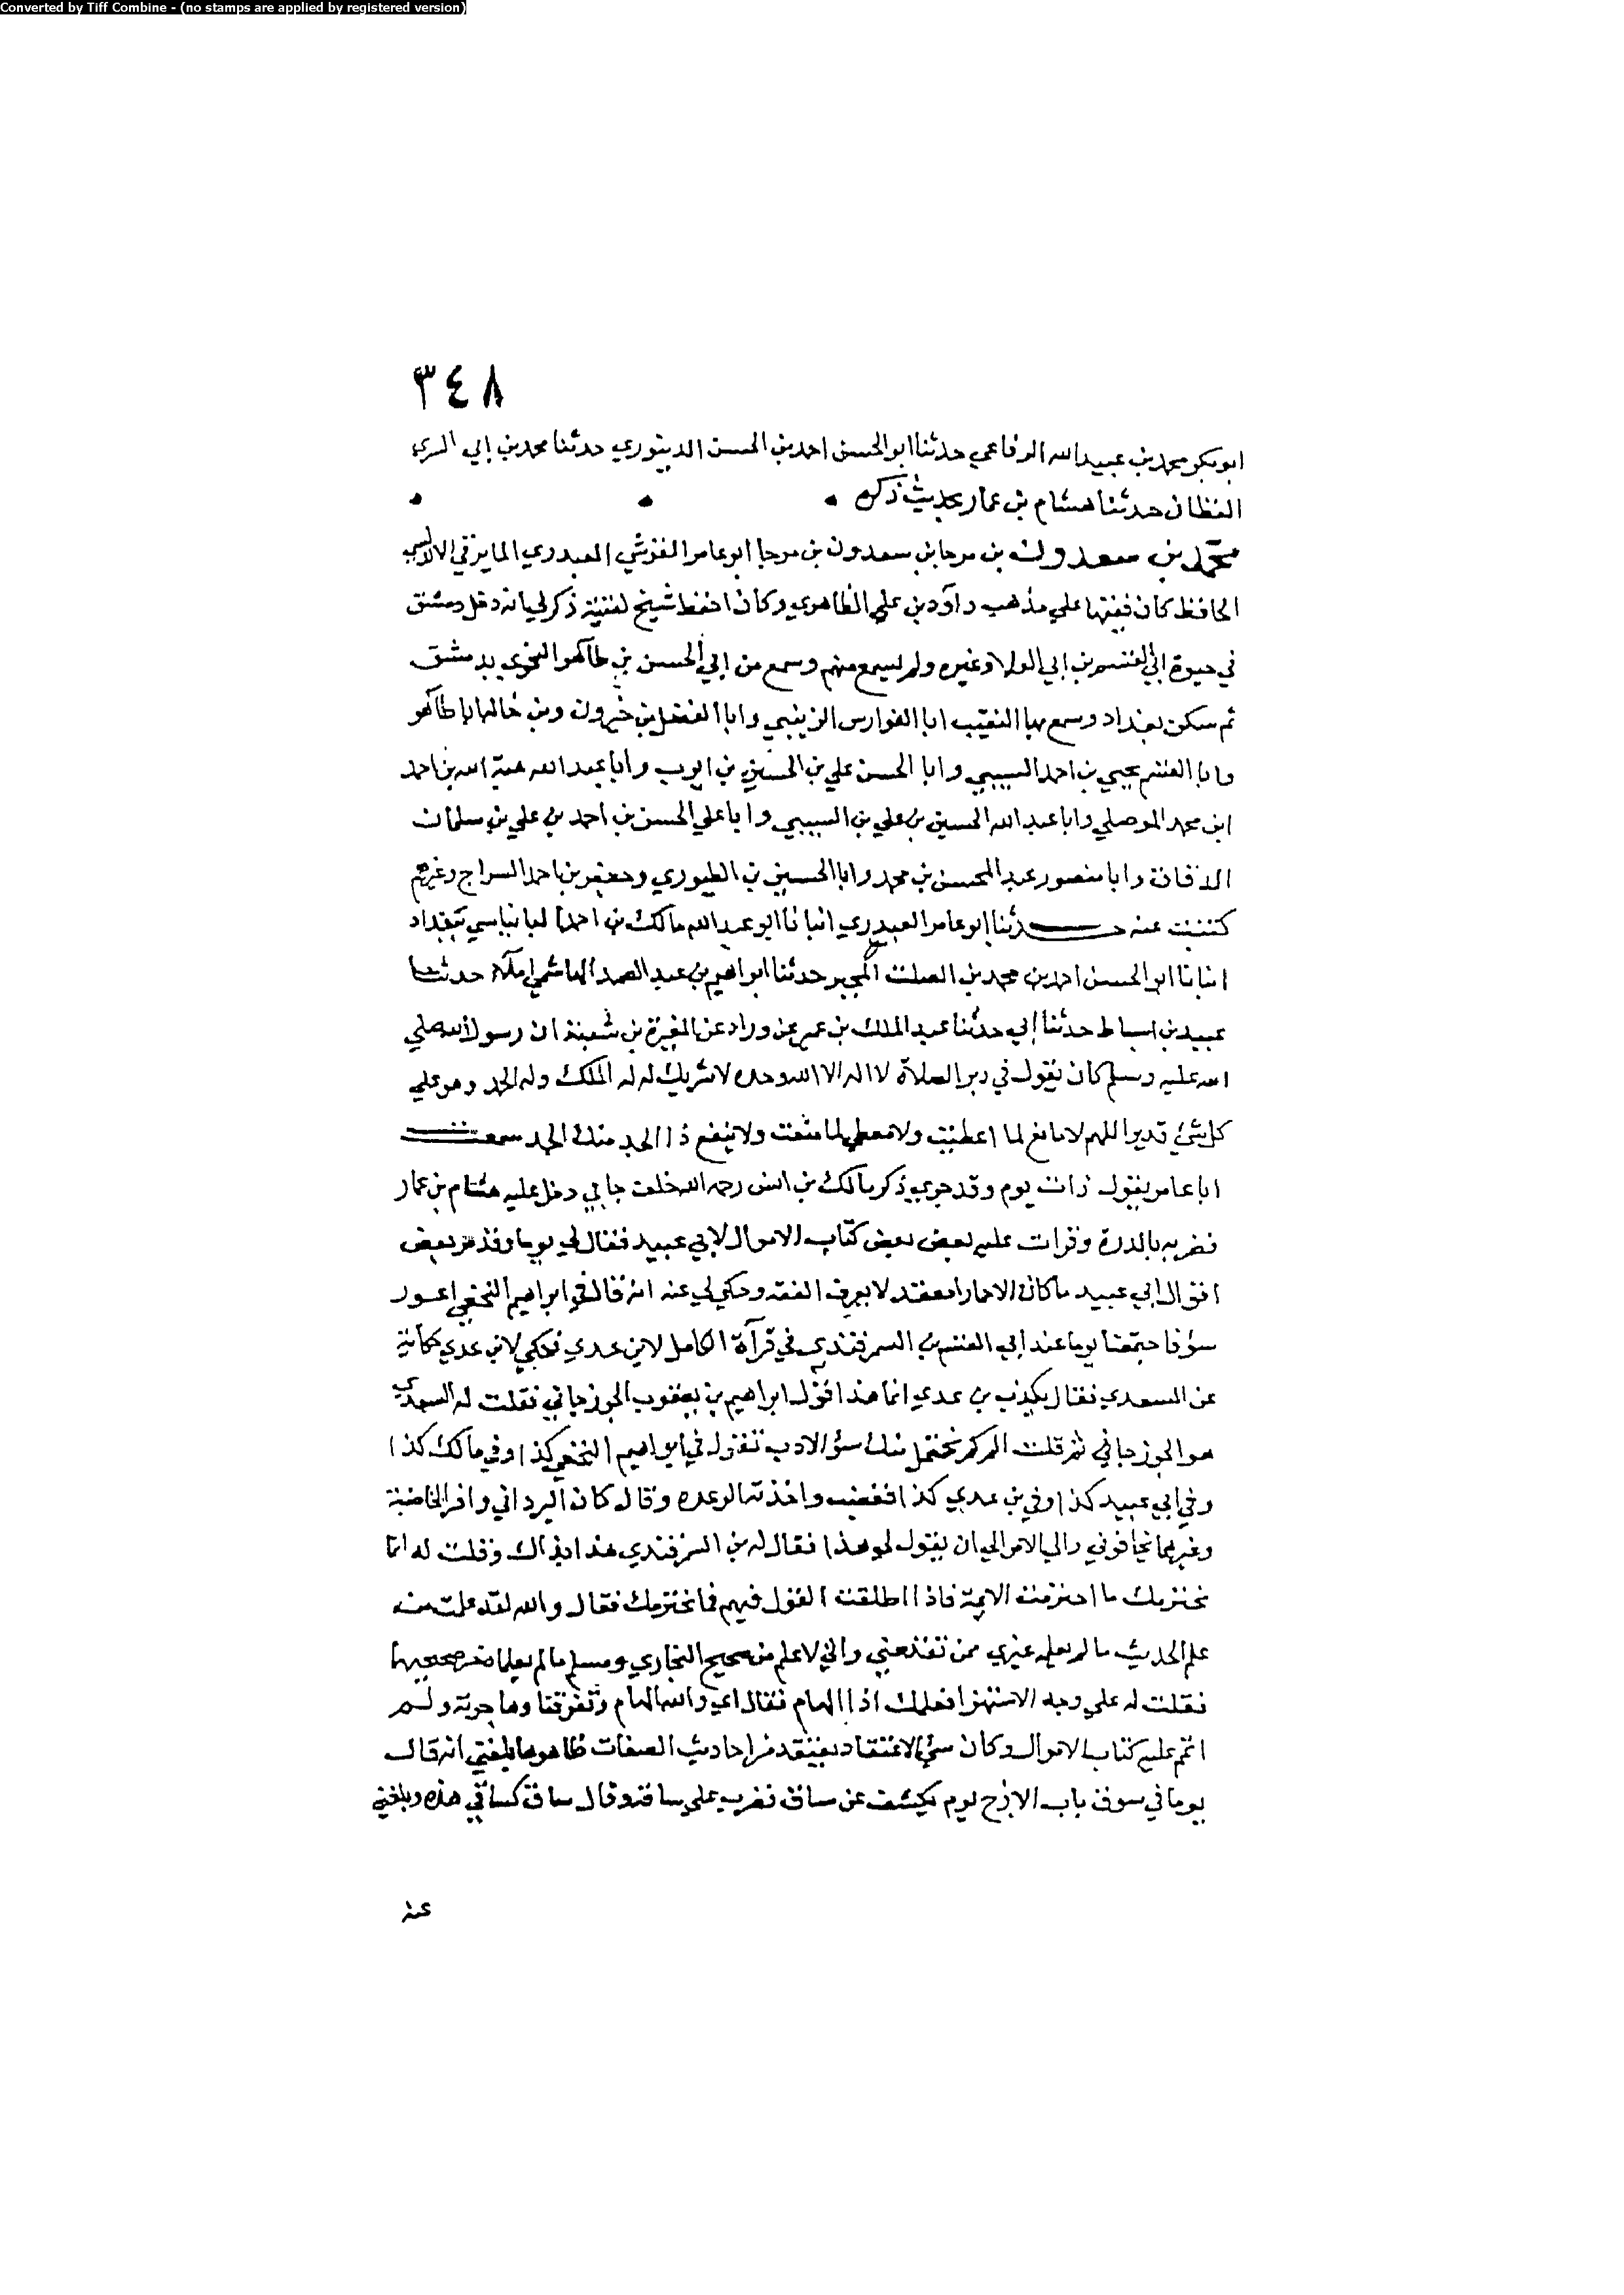 Converted by Tiff Combine - (no stamps are applied by registered version)
٣٤٨
ابو بكر محمد بن عبيد الله الرفاعي حدثنا ابو الحسن احمد بن الحسن الدينوري حدثنا محمد بن ابي السري
القطان حدثنا هشام بن عمار بحديث ذكره
محمد بن سعدون بن مرجا بن سعدون بن مرجا ابو عامر القرشي العبدري المايرقي الاندلسي
الحافظ كان فقيها علي مذهب داود بن علي الظاهري وكان احفظ شيخ لقيته ذكر لي انه دخل دمشق
في حيوة ابي القسم بن ابي العلا وغيره ولم يسمع منهم وسمع من ابي الحسن بن طاهر النحوي بدمشق
ثم سكن بغداد وسمع بها النقيب ابا الفوارس الزينبي وابا الفضل بن خيرون وبن خاله ابا طاهر
وابا القسم يحيي بن احمد السيبي وابا الحسن علي بن الحسين بن ايوب وابا عبد الله هبة الله بن احمد
ابن محمد الموصلي وابا عبد الله الحسين بن علي بن السيبي وابا علي الحسن بن احمد بن علي بن سلمان
الدقاق وابا منصور عبد المحسن بن محمد وابا الحسين بن الطيوري وجعفر بن احمد السراج وغيرهم
كتبت عنه حدثنا ابو عامر العبدري انبانا ابو عبد الله مالك بن احمد البانياسي ببغداد
انبانا ابو الحسن احمد بن محمد بن الصلت المجبر حدثنا ابراهيم بن عبد الصمد الهاشمي املاء حدثنا
عبيد بن اسباط حدثنا ابي حدثنا عبد الملك بن عمير عن وراد عن المغيرة بن شعبة ان رسول الله صلي
الله عليه وسلم كان يقول في دبر الصلاة لا اله الا الله وحده لا شريك له له الملك وله الحمد وهو علي
كل شئ قدير اللهم لا مانع لما اعطيت ولا معطي لما منعت ولا ينفع ذا الجد منك الجد سمعت
ابا عامر يقول ذات يوم وقد جري ذكر مالك بن انس رحمه الله خلعت جابي دخل عليه هشام بن عمار
فضربه بالدرة وقرات عليه بعض بعض كتاب الاموال لابي عبيد فقال لي يوما وقد مر بعض
اقوال ابي عبيد ما كان الا حمارا مغفلا لا يعرف الفقه وحكي لي عنه انه قال في ابراهيم النخعي اعور
سؤ فاجتمعنا يوما عند ابي القسم بن السمرقندي في قرآة الكامل لابن عدي فحكي لابن عدي حكاية
عن السعدي فقال يكذب بن عدي انما هذا قول ابراهيم بن يعقوب الجوزجاني فقلت له السعدي
هو الجوزجاني ثم قلت الي كم نحتمل منك سؤ الادب تقول في ابراهيم النخعي كذا وفي مالك كذا
وفي ابي عبيد كذا وفي بن عدي كذا فغضب واخذته الرعدة وقال كان البرداني وابن الخاضبة
وغيرهما يخافوني وال الامر الي ان يقول لي هذا فقال له بن السمرقندي هذا بذاك وقلت له انما
نحترمك ما احترمت الايمة فاذا اطلقت القول فيهم فما نحترمك فقال والله لقد علمت من
علم الحديث ما لم يعلمه غيري ممن تقدمني واني لاعلم من صحيح البخاري ومسلم ما لم يعلماه من صحيحيهما
فقلت له علي وجه الاستهزا فعلمك اذا الهام فقال اي والله الهام وتفرقنا وهاجرته ولم
اتم عليه كتاب الاموال وكان سئ الاعتقاد يعتقد من احاديث الصفات ظاهرها بلغني انه قال
يوما في سوق باب الازج يوم يكشف عن ساق فضرب علي ساقه وقال ساق كساقي هذه وبلغني
عنه